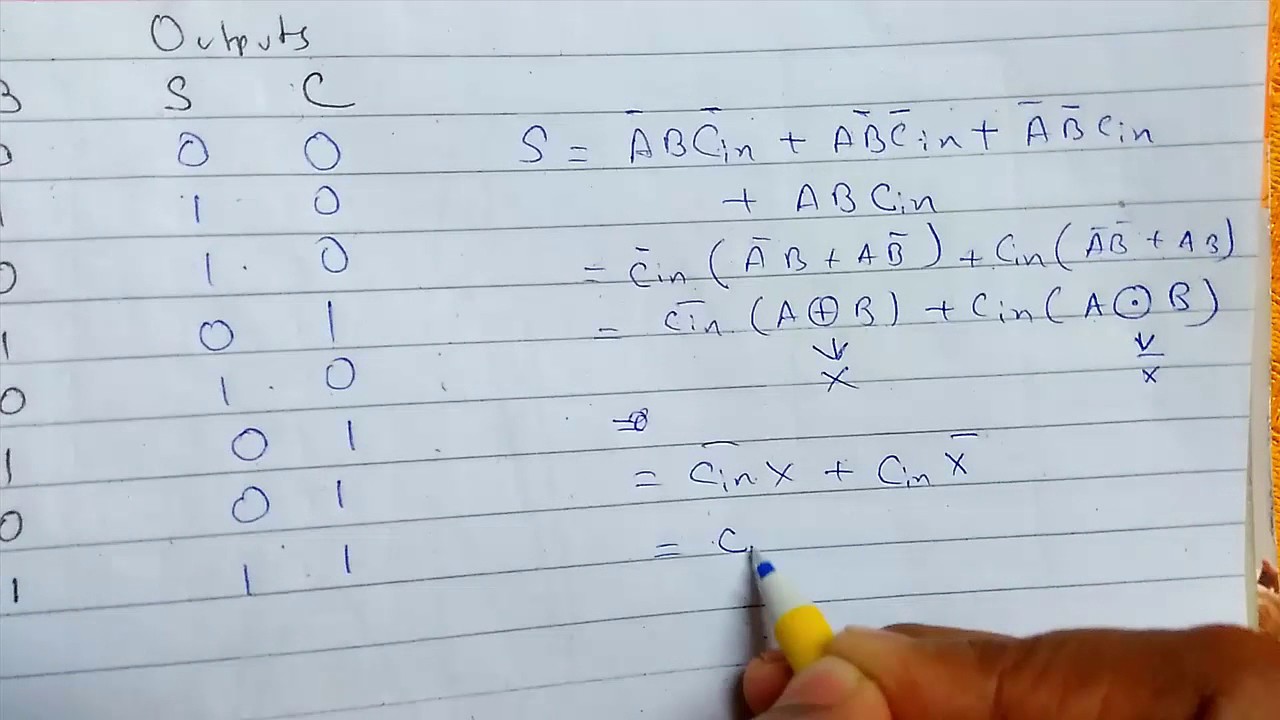 Outputs
B S C
0 0 0
1 1 0
0 1 0
1 0 1
0 1 0
1 0 1
0 0 1
1 1 1
S = A̅BC̅in + AB̅C̅in + A̅B̅Cin
+ ABCin
= C̅in (A̅B + AB̅) + Cin (A̅B̅ + AB)
= C̅in (A⊕B) + Cin (A⊙B)
↓ ↓
X X̅
= C̅in X + Cin X̅
= Ci